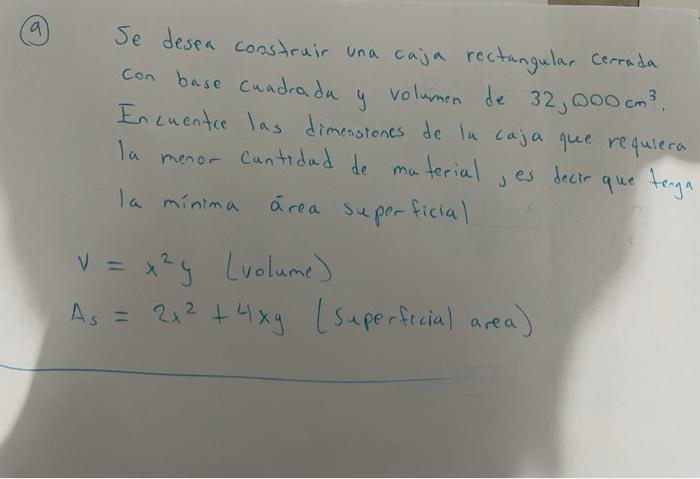 9
Se desea construir una caja rectangular cerrada
con base cuadrada y volumen de 32,000 cm³.
Encuentre las dimensiones de la caja que requiera
la menor cantidad de material, es decir que tenga
la mínima área superficial
V = x²y (volume)
As = 2x² + 4xy (Superficial area)